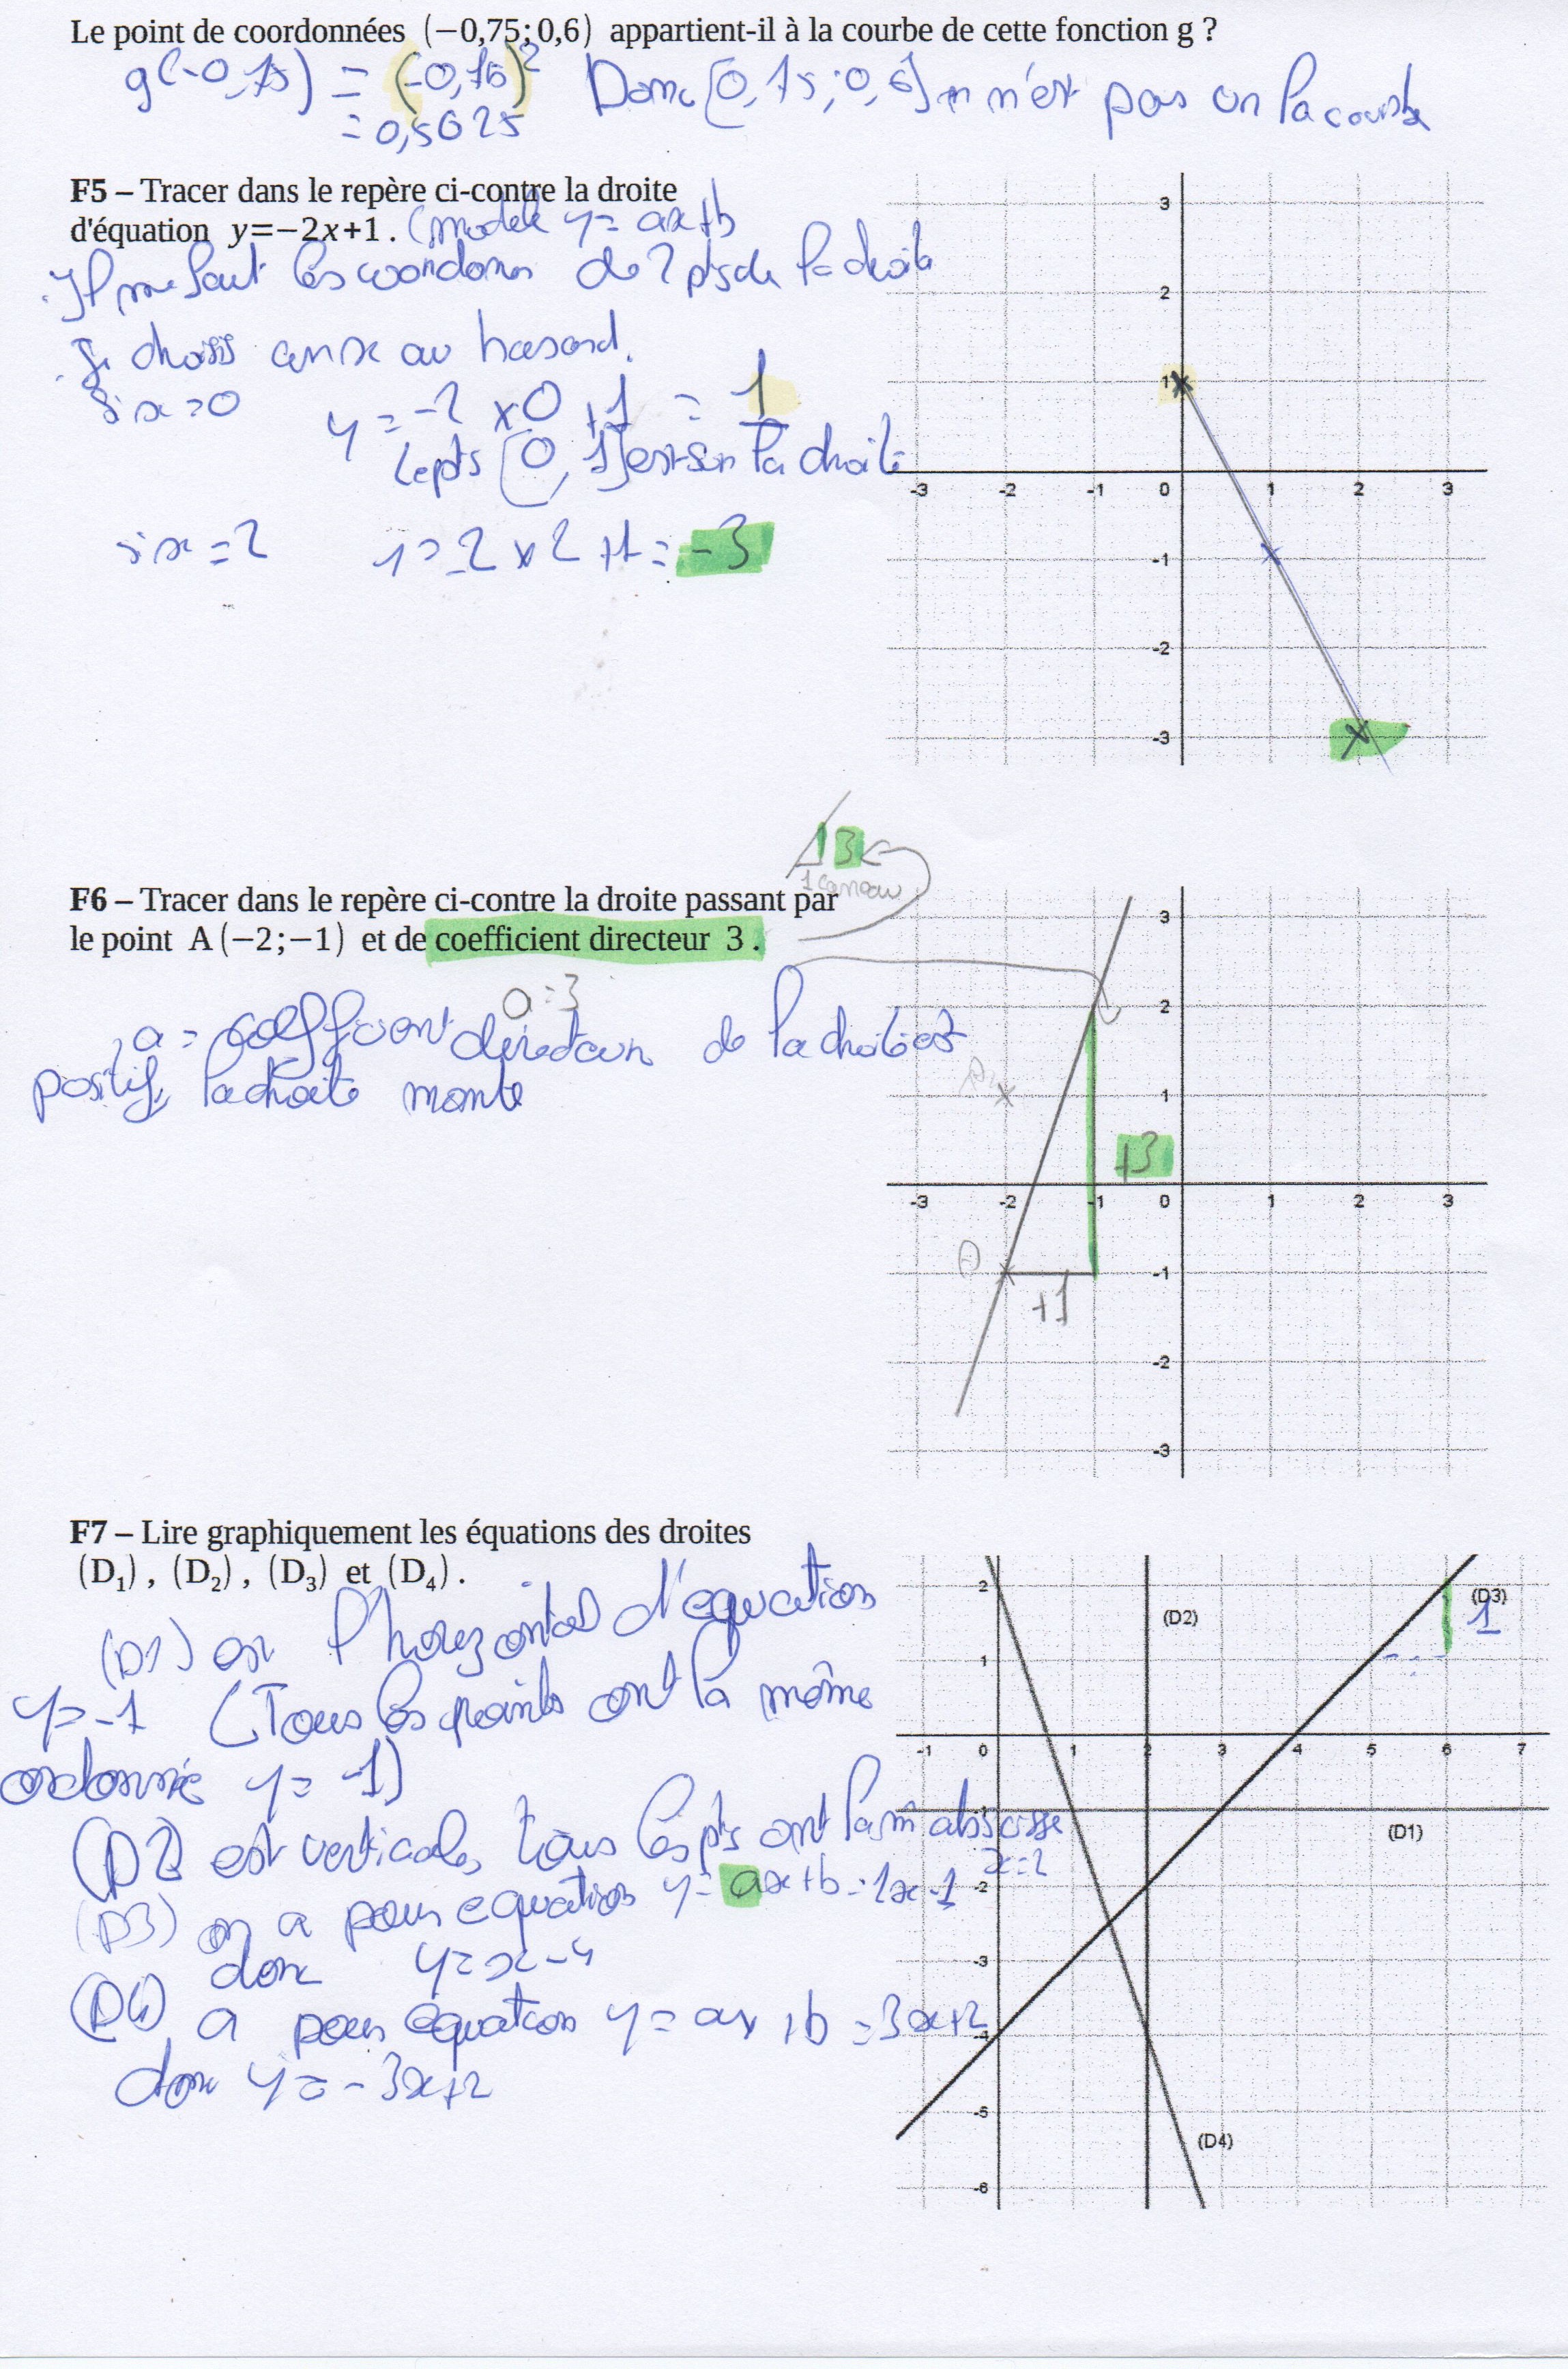 Le point de coordonnées (−0,75;0,6) appartient-il à la courbe de cette fonction g ?
g(-0,75) = (-0,76)² Donc [0,75;0,6] n'est pas on la courbe
= 0,5625
F5 – Tracer dans le repère ci-contre la droite
d'équation y=−2x+1. (modele y= ax+b
Il me faut les coordones de 2 pts de la droite
Je choisis un x au hasard.
Si x=0 y = -2 x0 +1 = 1
Le pts [0, 1] est sur la droite
si x=2 y=-2 x2 +1= -3
3
2
1
-3 -2 -1 0 1 2 3
-1
-2
-3
3
1 carreau
F6 – Tracer dans le repère ci-contre la droite passant par
le point A(−2;−1) et de coefficient directeur 3.
a=3
a = coefficient directeur de la droite est
positif, la droite monte
3
2
1
+3
-3 -2 -1 0 1 2 3
A
-1
+1
-2
-3
F7 – Lire graphiquement les équations des droites
(D₁), (D₂), (D₃) et (D₄).
(D1) est l'horizontal d'equation
y=-1 (Tous les points ont la même
ordonnée y= -1)
(D2) est verticale, tous les pts ont la m abscisse
x=2
(D3) on a pour equation y= ax+b = 1x-1
donc y=x-4
(D4) a pour équation y= ax +b =3x+2
donc y=-3x+2
2
(D2)
(D3)
1
1
-1 0 1 2 3 4 5 6 7
-1
(D1)
-2
-3
-4
-5
(D4)
-6